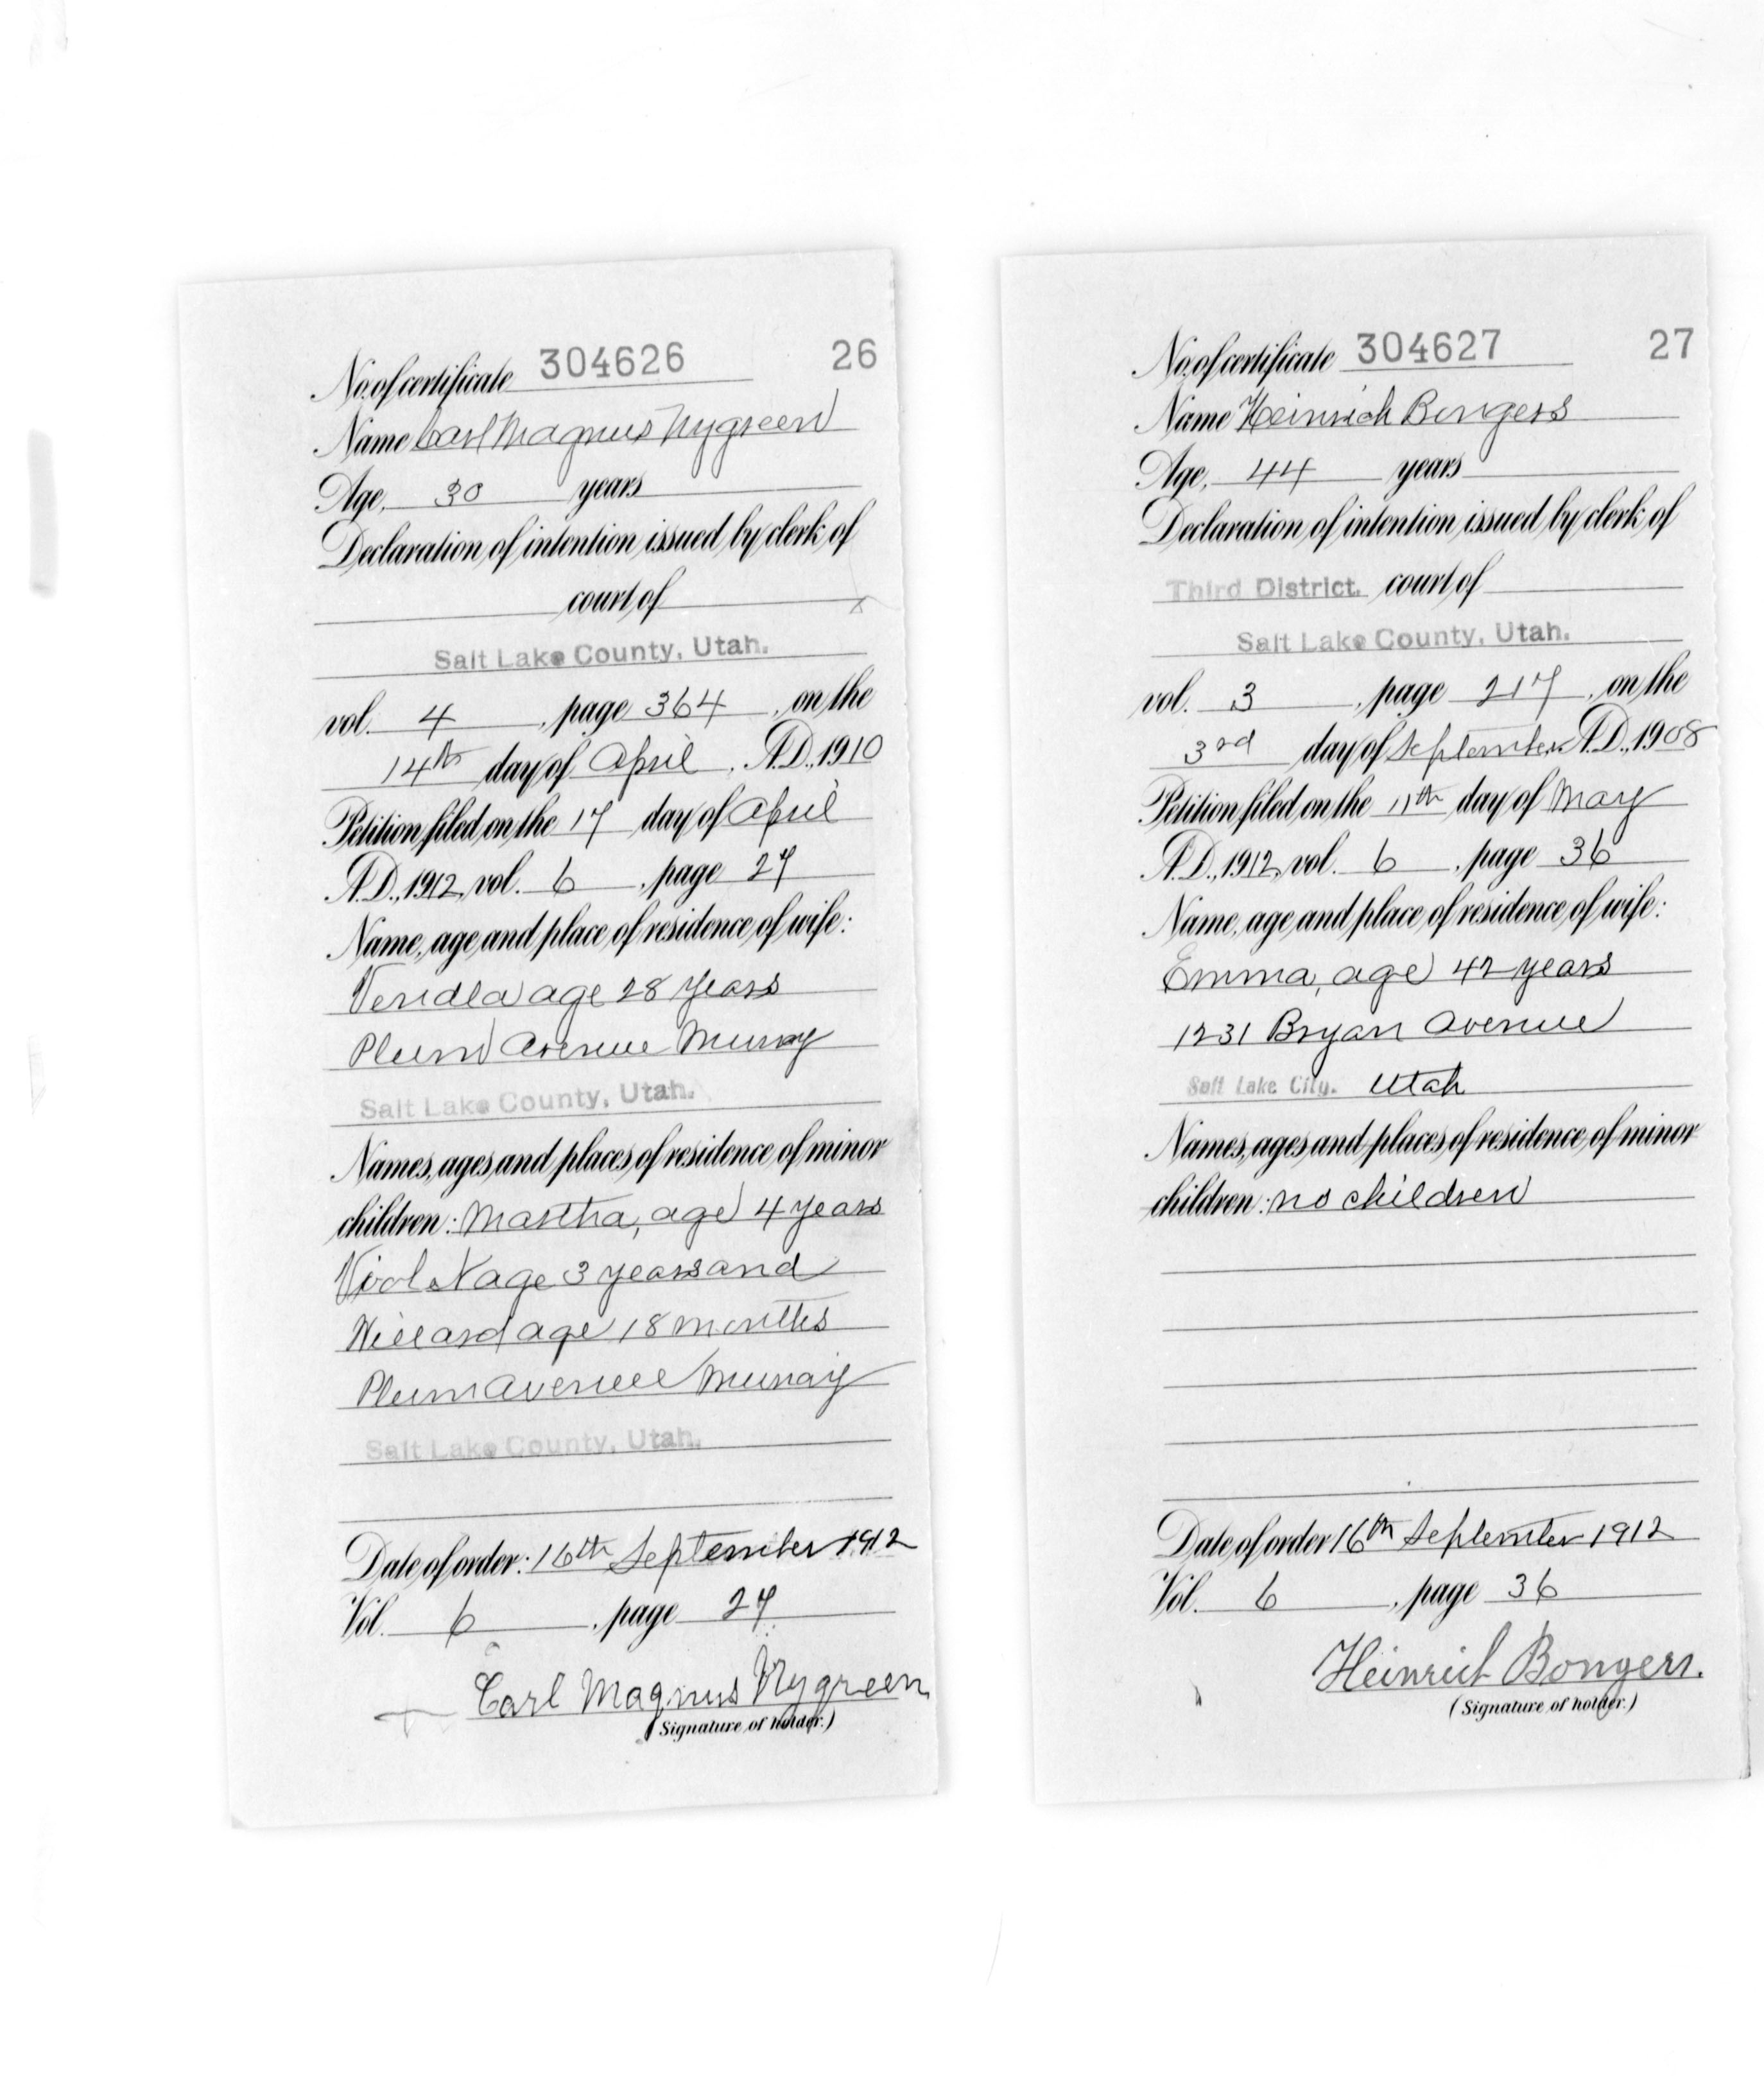 No. of certificate 304626 26
Name Carl Magnus Nygreen
Age, 30 years
Declaration of intention issued by clerk of
court of
Salt Lake County, Utah.
vol. 4, page 364, on the
14th day of April, A.D., 1910
Petition filed on the 17 day of April
A.D., 1912, vol. 6, page 27
Name, age and place of residence of wife:
Vendla age 28 years
Plum Avenue Murray
Salt Lake County, Utah.
Names, ages and places of residence of minor
children: Martha, age 4 years
Violet age 3 years and
Willard age 18 months
Plum Avenue Murray
Salt Lake County, Utah.
Date of order: 16th September 1912
Vol. 6, page 27
Carl Magnus Nygreen
(Signature of holder.)
No. of certificate 304627 27
Name Heinrich Bongers
Age, 44 years
Declaration of intention issued by clerk of
Third District. court of
Salt Lake County, Utah.
vol. 3, page 217, on the
3rd day of September A.D., 1908
Petition filed on the 11th day of May
A.D., 1912, vol. 6, page 36
Name, age and place of residence of wife:
Emma, age 42 years
1231 Bryan Avenue
Salt Lake City. Utah
Names, ages and places of residence of minor
children: no children
Date of order 16th September 1912
Vol. 6, page 36
Heinrich Bongers.
(Signature of holder.)